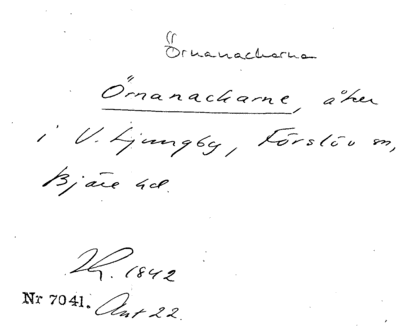 Örnanackarna
Örnanackarne, åker
i V. Ljungby, Förslöv sn,
Bjäre hd.
1842
Nr 7041. Ant 22.